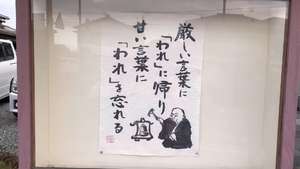 厳しい言葉に
「われ」に帰り
甘い言葉に
「われ」を忘れる